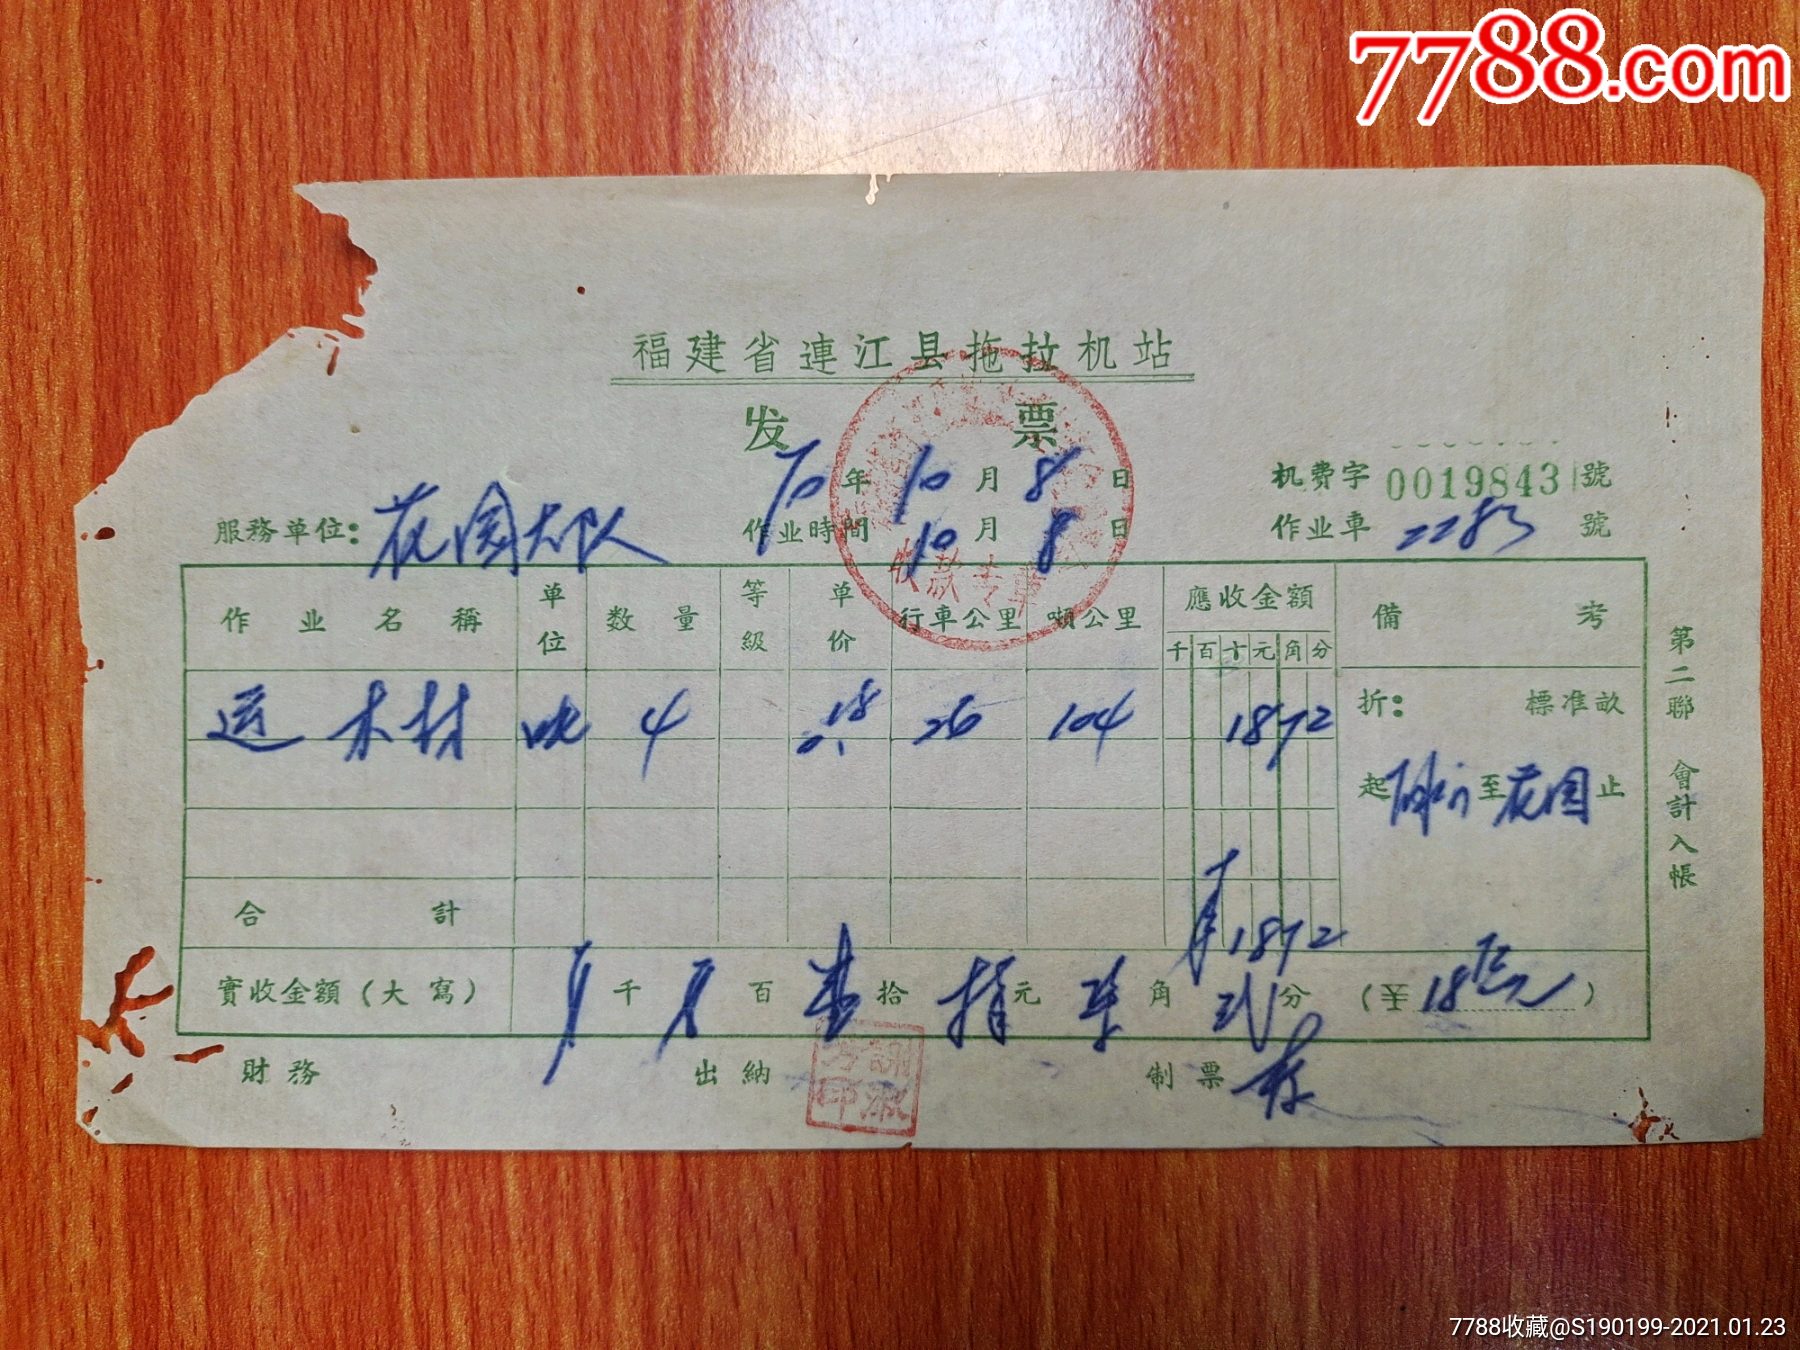 7788.com
福建省連江县拖拉机站
发 票
70年 10月 8日
机费字 0019843 號
服務单位：花园大队
作业時間 10月 8日
作业車 號
收款专章
作业名稱 单位 数量 等級 单价 行車公里 噸公里 應收金額 備考
千 百 十 元 角 分
运 木材 吨 4 0.18 26 104 1872
折： 標准畝
起 至花园止
合計 1872
實收金額（大寫） 千 百 壹拾 捌元 柒角 弍分 （￥18.72元）
財務 出納 制票
第二聯 會計入帳
7788收藏@S190199-2021.01.23